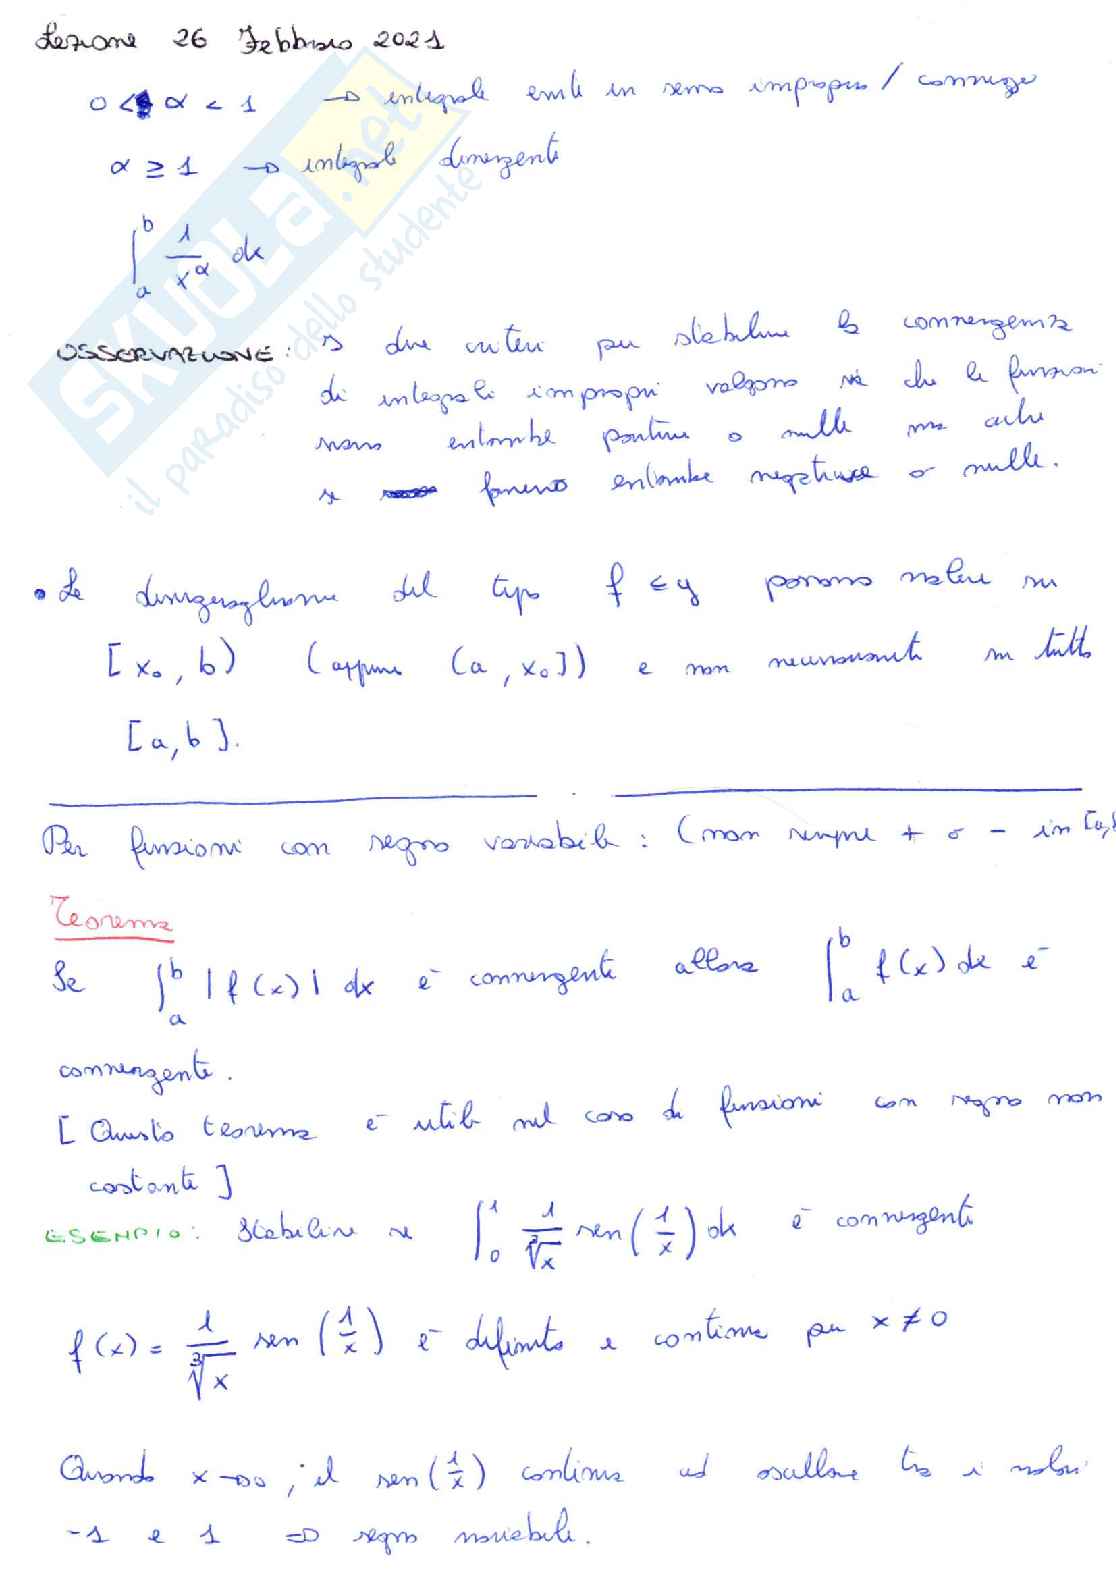 Lezione 26 Febbraio 2021
0 < α < 1 → integrale esiste in senso improprio / converge
α ≥ 1 → integrale divergente
∫_a^b 1/x^α dx
OSSERVAZIONE: I due criteri per stabilire la convergenza
di integrali impropri valgono sia che le funzioni
siano entrambe positive o nulle ma anche
se fossero entrambe negative o nulle.
• Le disuguaglianze del tipo f ≤ g possono valere su
[x₀, b) (oppure (a, x₀]) e non necessariamente su tutto
[a, b].
Per funzioni con segno variabile: (non sempre + o - in [a,b
Teorema
Se ∫_a^b |f(x)| dx è convergente allora ∫_a^b f(x) dx è
convergente.
[Questo teorema è utile nel caso di funzioni con segno non
costante]
ESEMPIO: Stabilire se ∫_0^1 1/∛x sen(1/x) dx è convergente
f(x) = 1/∛x sen(1/x) è definita e continua per x ≠ 0
Quando x→0, il sen(1/x) continua ad oscillare tra i valori
-1 e 1 ⇒ segno variabile.
SKUOLA.net
il paradiso dello studente